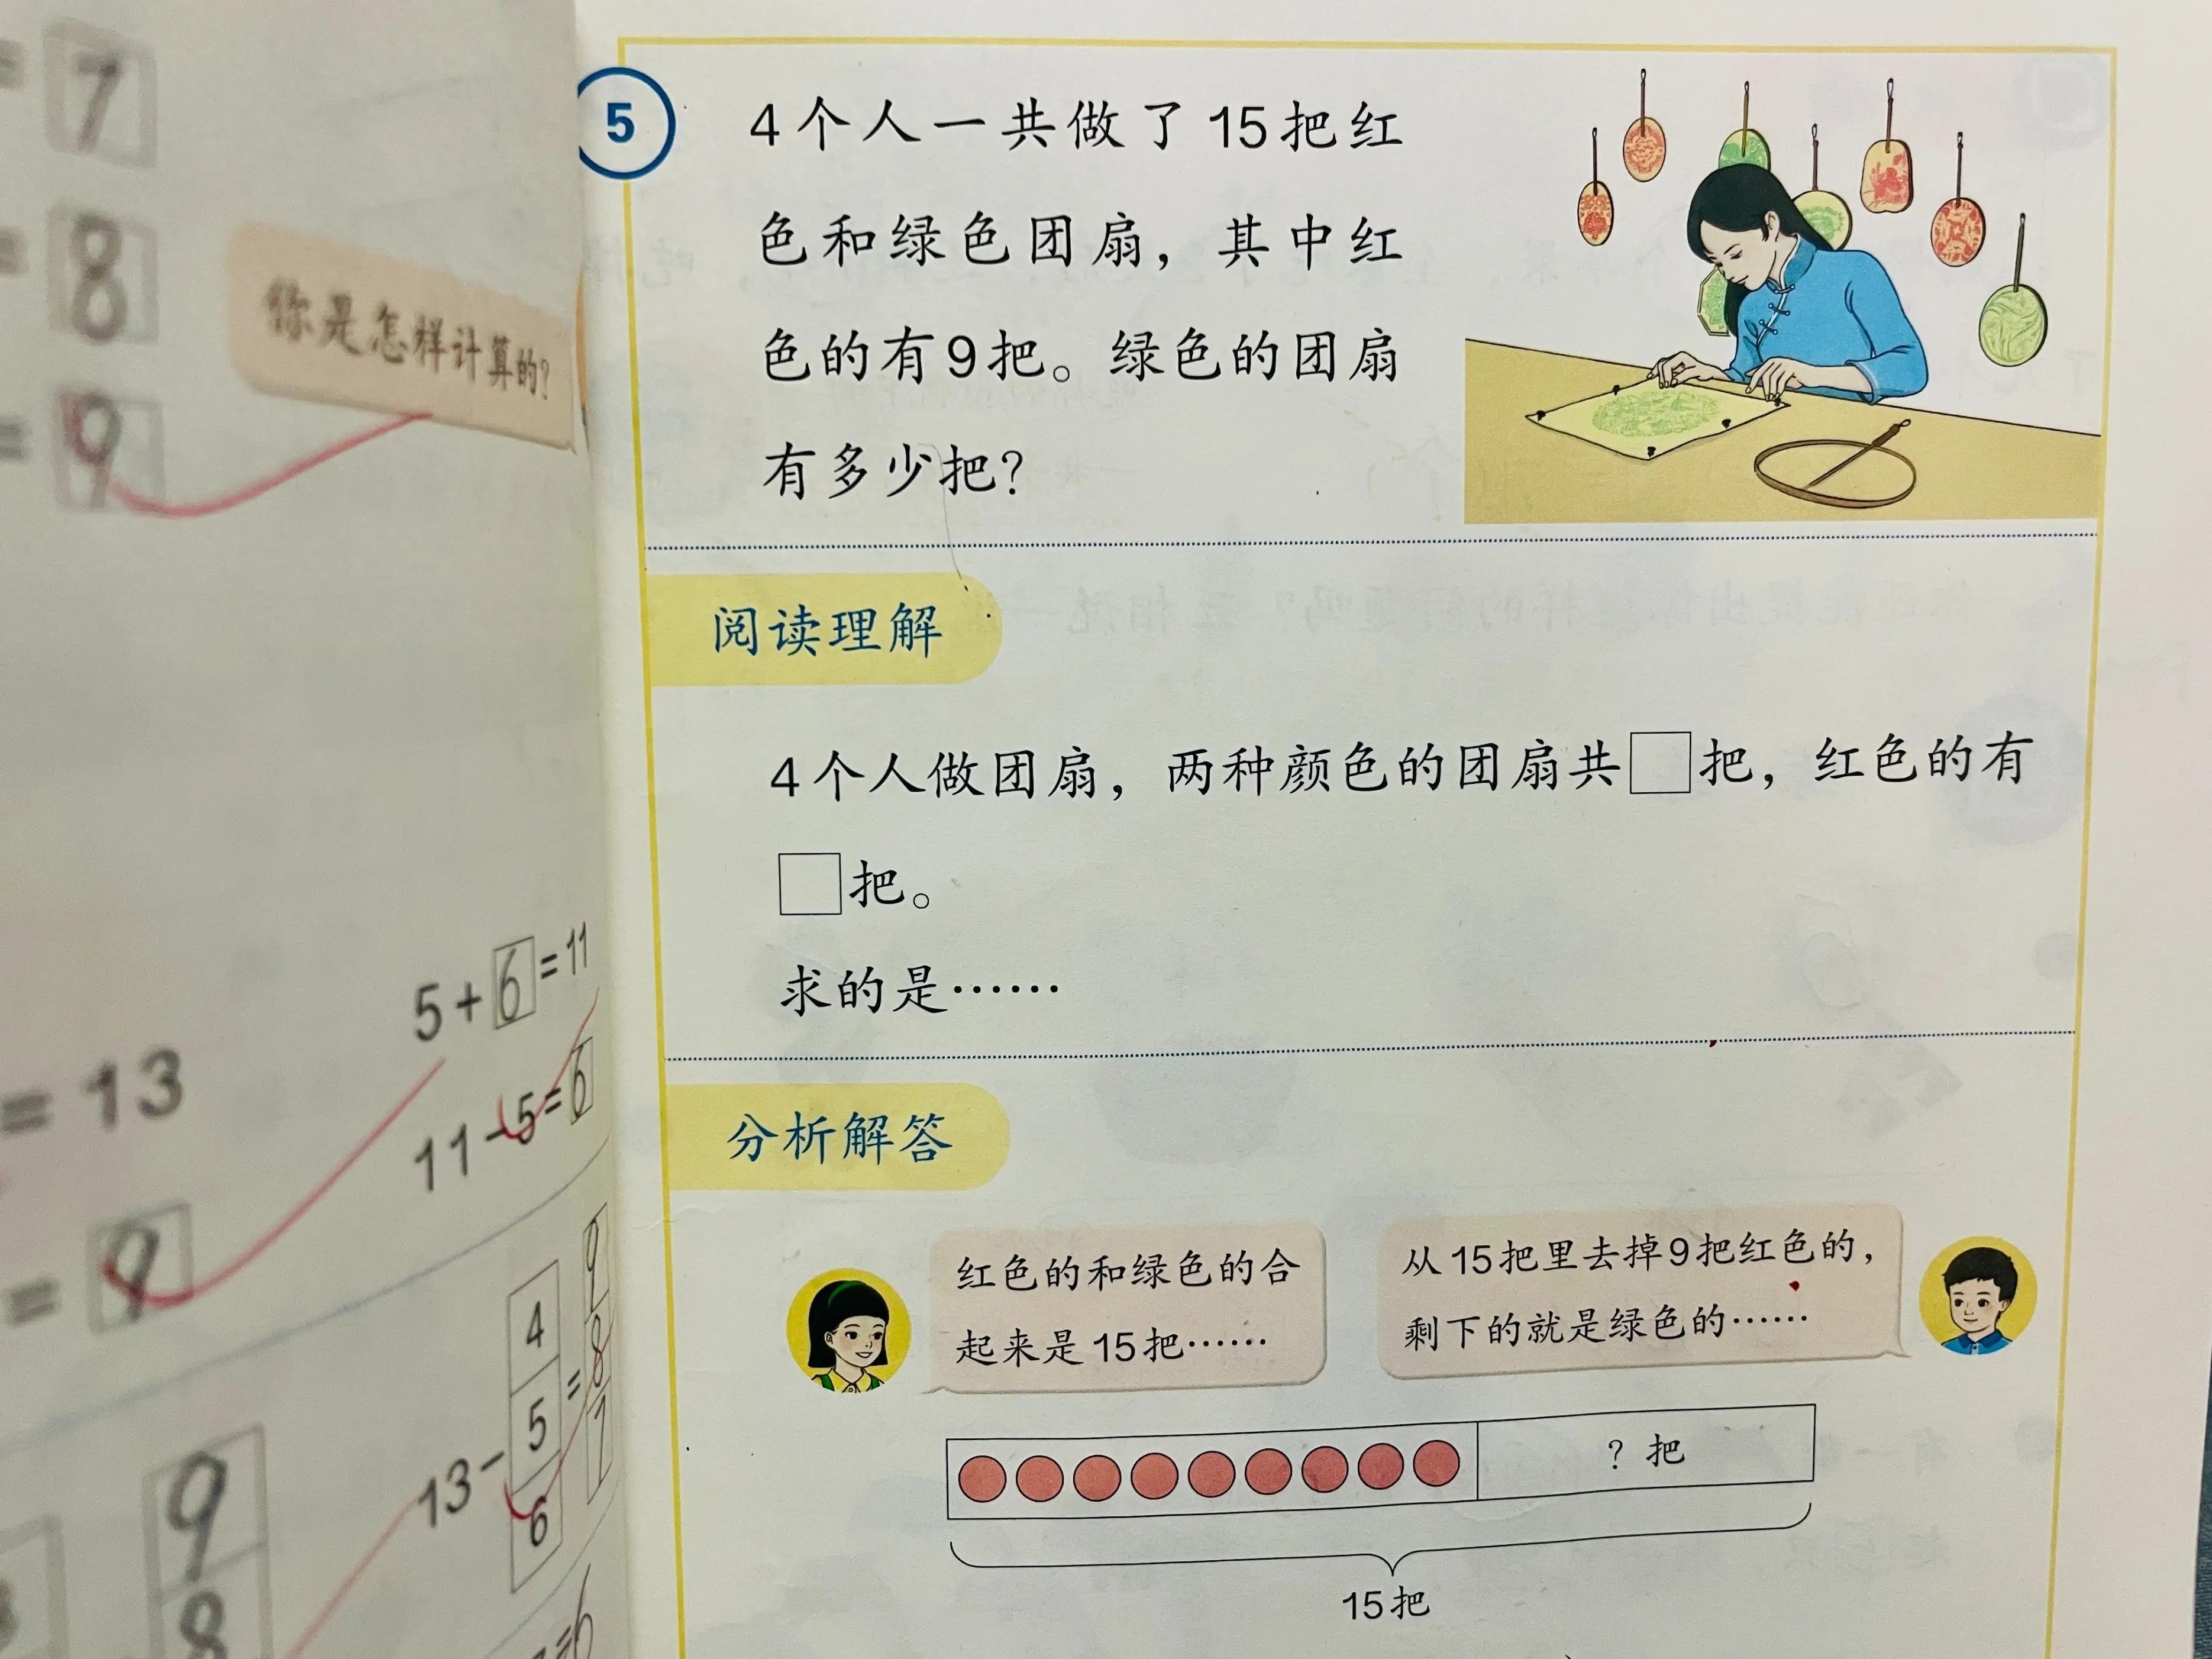 = 7
= 8
= 9
你是怎样计算的?
5+6=11
= 13
11-5=6
= 9
4
5
6
13-
=
9
8
7
9
8
=6
5
4个人一共做了15把红
色和绿色团扇，其中红
色的有9把。绿色的团扇
有多少把?
阅读理解
4个人做团扇，两种颜色的团扇共□把，红色的有
□把。
求的是……
分析解答
红色的和绿色的合
起来是15把……
从15把里去掉9把红色的，
剩下的就是绿色的……
? 把
15把